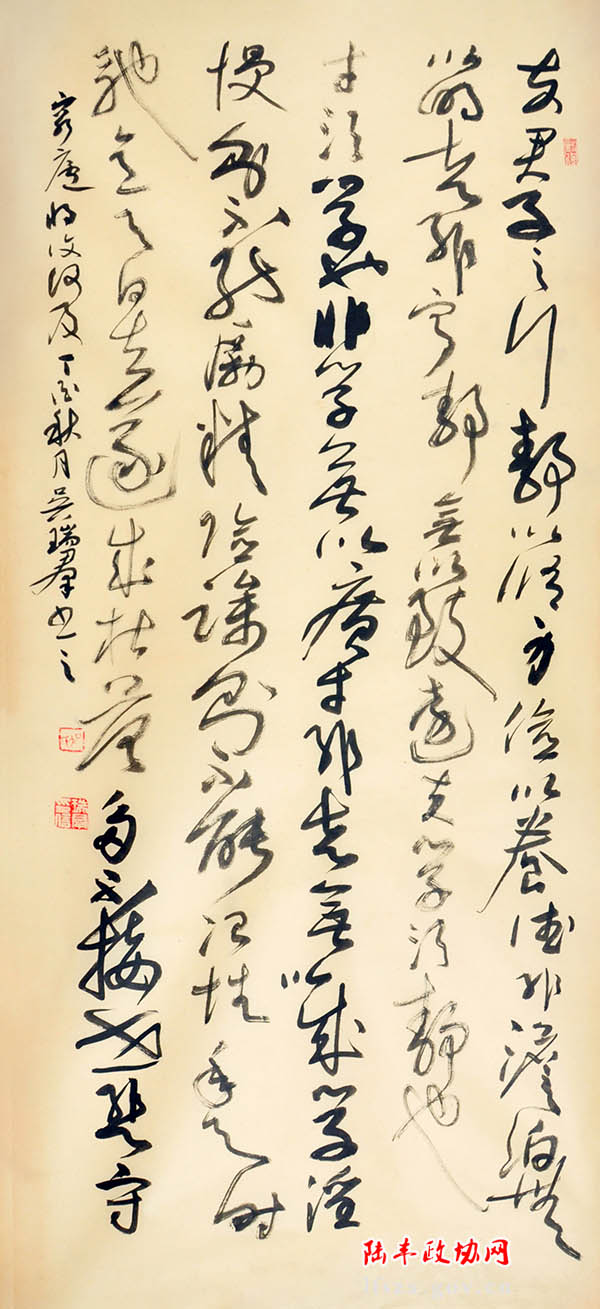 夫君子之行静以修身俭以養德非澹泊無
以明志非宁静無以致遠夫学须静也
才须学也非学無以廣才非志無以成学淫
慢则不能励精险躁则不能冶性年与时
驰意与日去遂成枯落多不接世悲守
穷庐将复何及丁酉秋月吴瑞群书之
陆丰政协网